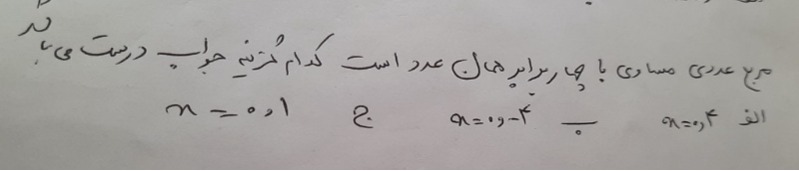 مربع عددی مساوی با چهار برابر همان عدد است کدام گزینه جواب درست می باشد
الف x=0,4 ب x=0,-4 ج x=0,1